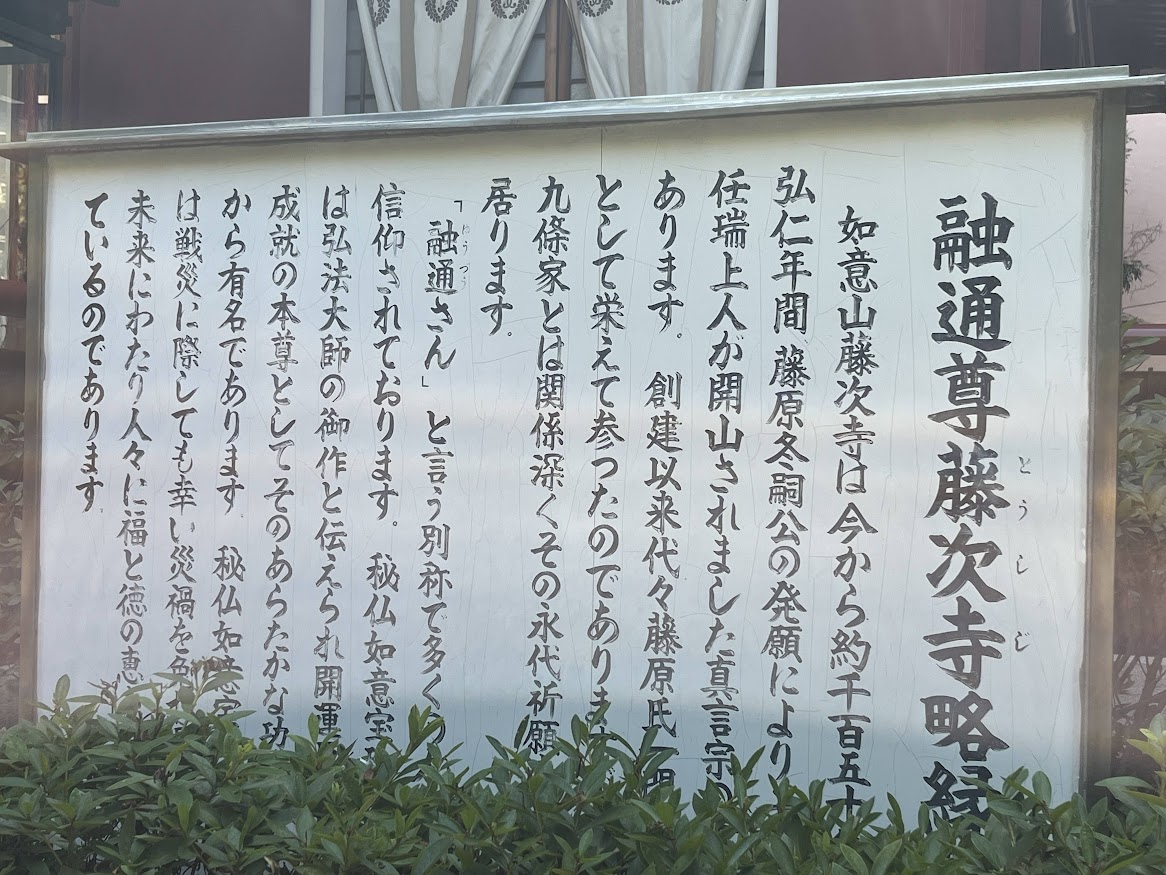 融通尊藤次寺略縁
とうしじ
如意山藤次寺は今から約千百五十
弘仁年間、藤原冬嗣公の発願により
任瑞上人が開山されました真言宗の
あります。 創建以来代々藤原氏一門
として栄えて参つたのであります
九條家とは関係深くその永代祈願
居ります。
「融通さん」と言う別称で多くの
ゆうづう
信仰されております。 秘仏如意宝珠
は弘法大師の御作と伝えられ開運
成就の本尊としてそのあらたかな功
から有名であります。 秘仏如意宝
は戦災に際しても幸い災禍を免
未来にわたり人々に福と徳の恵
ているのであります。